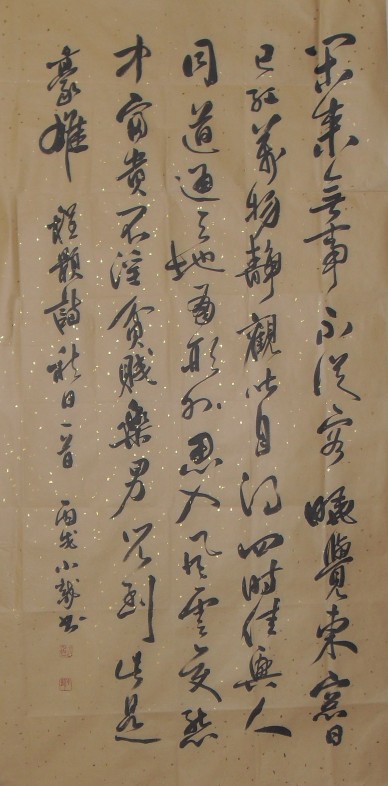 閒來無事不從容睡覺東窗日
已紅萬物靜觀皆自得四時佳興人
同道通天地有形外思入風雲變態
中富貴不淫貧賤樂男兒到此是
豪雄 程顥詩秋日一首 丙戌小书